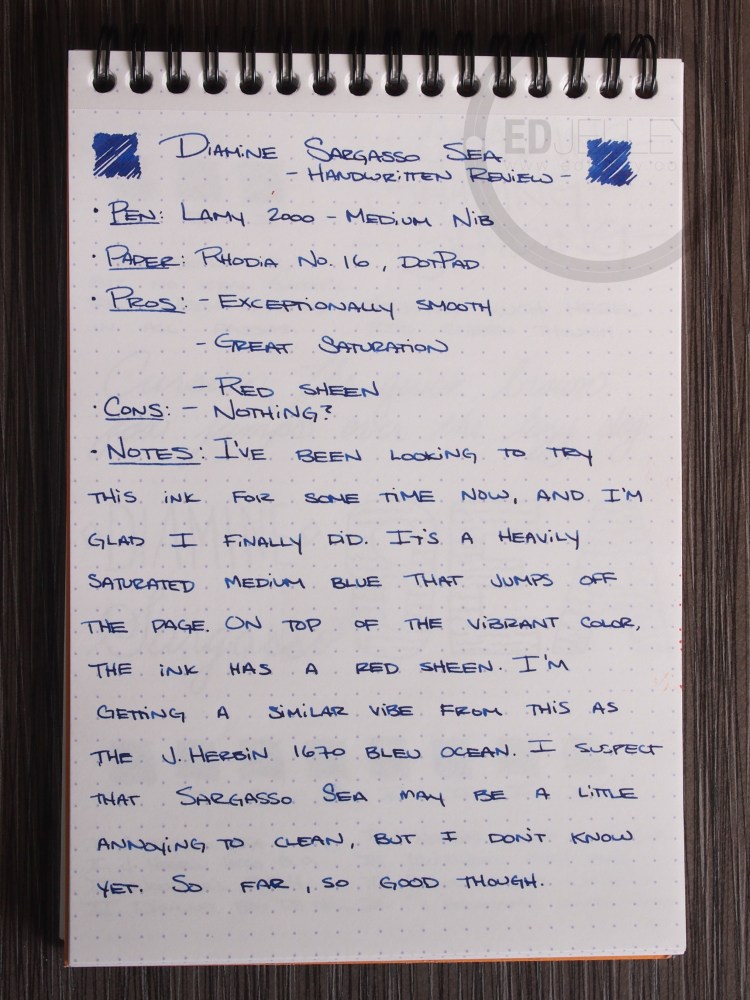 EDJELLEY
DIAMINE SARGASSO SEA
- HANDWRITTEN REVIEW -
• PEN: LAMY 2000 - MEDIUM NIB
• PAPER: RHODIA NO. 16, DOTPAD
• PROS: - EXCEPTIONALLY SMOOTH
- GREAT SATURATION
- RED SHEEN
• CONS: - NOTHING?
• NOTES: I'VE BEEN LOOKING TO TRY
THIS INK FOR SOME TIME NOW, AND I'M
GLAD I FINALLY DID. IT'S A HEAVILY
SATURATED MEDIUM BLUE THAT JUMPS OFF
THE PAGE. ON TOP OF THE VIBRANT COLOR,
THE INK HAS A RED SHEEN. I'M
GETTING A SIMILAR VIBE FROM THIS AS
THE J. HERBIN 1670 BLEU OCEAN. I SUSPECT
THAT SARGASSO SEA MAY BE A LITTLE
ANNOYING TO CLEAN, BUT I DON'T KNOW
YET. SO FAR, SO GOOD THOUGH.